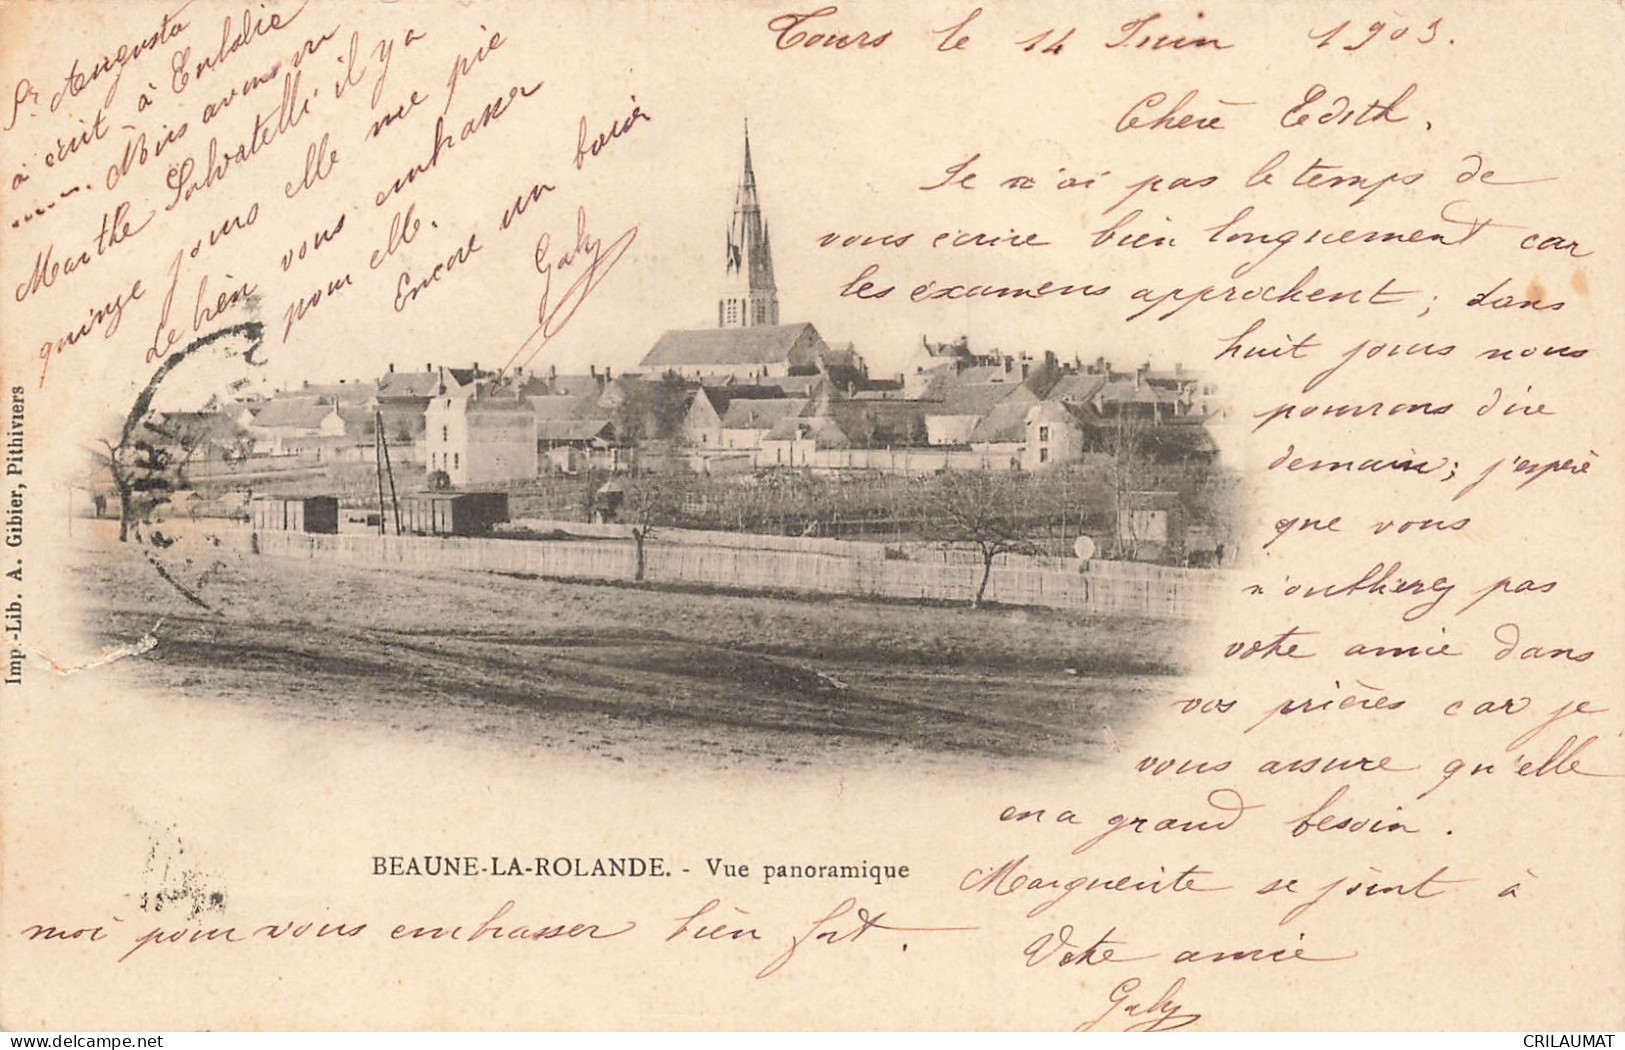 Tours le 14 Juin 1903.
Chère Edith,
Je n'ai pas le temps de
vous écrire bien longuement car
les examens approchent ; dans
huit jours nous
pourrons dire
demain ; j'espère
que vous
n'oublierez pas
votre amie dans
vos prières car je
vous assure qu'elle
en a grand besoin.
Marguerite se joint à
moi pour vous embrasser bien fort.
Votre amie
Galy
Sr Augusta
a écrit à Eulalie
...... Nous avons vu
Marthe Salvatelli il y a
quinze jours elle me prie
de bien vous embrasser
pour elle.
Encore un baiser
Galy
BEAUNE-LA-ROLANDE. - Vue panoramique
Imp.-Lib. A. Gibier, Pithiviers
delcampe.net
CRILAUMAT